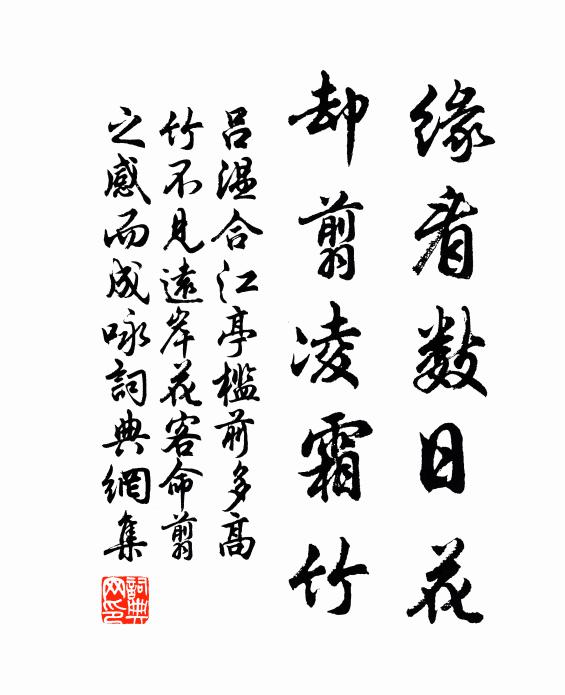 緣看數日花
却剪凌霜竹
呂溫合江亭檻前多高
竹不見遠岸花客命剪
之感而成咏詞典網集
詞典网印